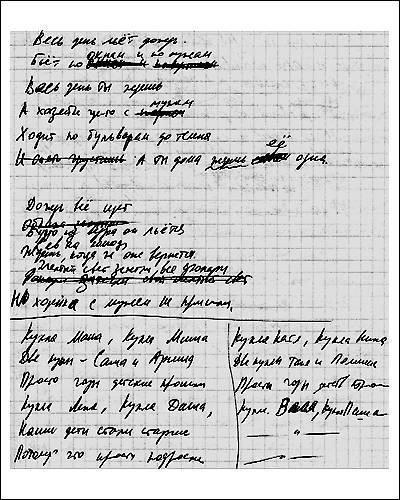 Весь день льёт дождь.
Бьёт по окнам и по лужам
Весь день ты ждёшь
А хозяйка где-то с мужем
Ходит по бульварам до темна
А ты дома ждёшь её одна.
Дождь всё идёт
Будто из ведра он льётся
Ждёшь, когда же она вернётся.
Но хозяйка с мужем не пришли.
Кукла Маша, Кукла Миша
Две куклы - Саша и Ариша
Просто годы детские прошли
Кукла Лена, Кукла Даша,
Наши дети стали старше
Потому что просто подросли
Кукла Катя, Кукла Нина
Две куклы Таня и
Просто годы детские
Кукла Паша
— " —
— " —